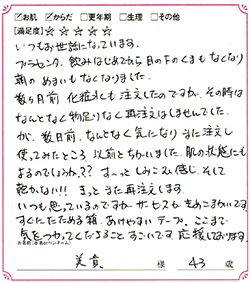 ☑お肌 ☑からだ □更年期 □生理 □その他
【満足度】☆ ☆ ☆ ☆ ☆
いつもお世話になっています。
プラセンタ、飲みはじめてから目の下のくまもなくなり
朝のめまいもなくなりました。
数ヶ月前 化粧水も注文したのですが、その時は
なんとなく物足りなく再注文はしませんでした。
が、数日前、なんとなく気になり また注文し
使ってみたところ 以前とちがいました。肌の状態にも
よるのでしょうか。?? すーっと しみこむ感じ そして
乾かない!!! きっと また再注文します。
いつも思っているのですが サービスがきめこまかいです。
すぐにたためる箱、あけやすいテープ、ここまで
気をつかってくださること すごいです。応援しております。
お名前(本名orペンネーム)
美貴 様 43 歳